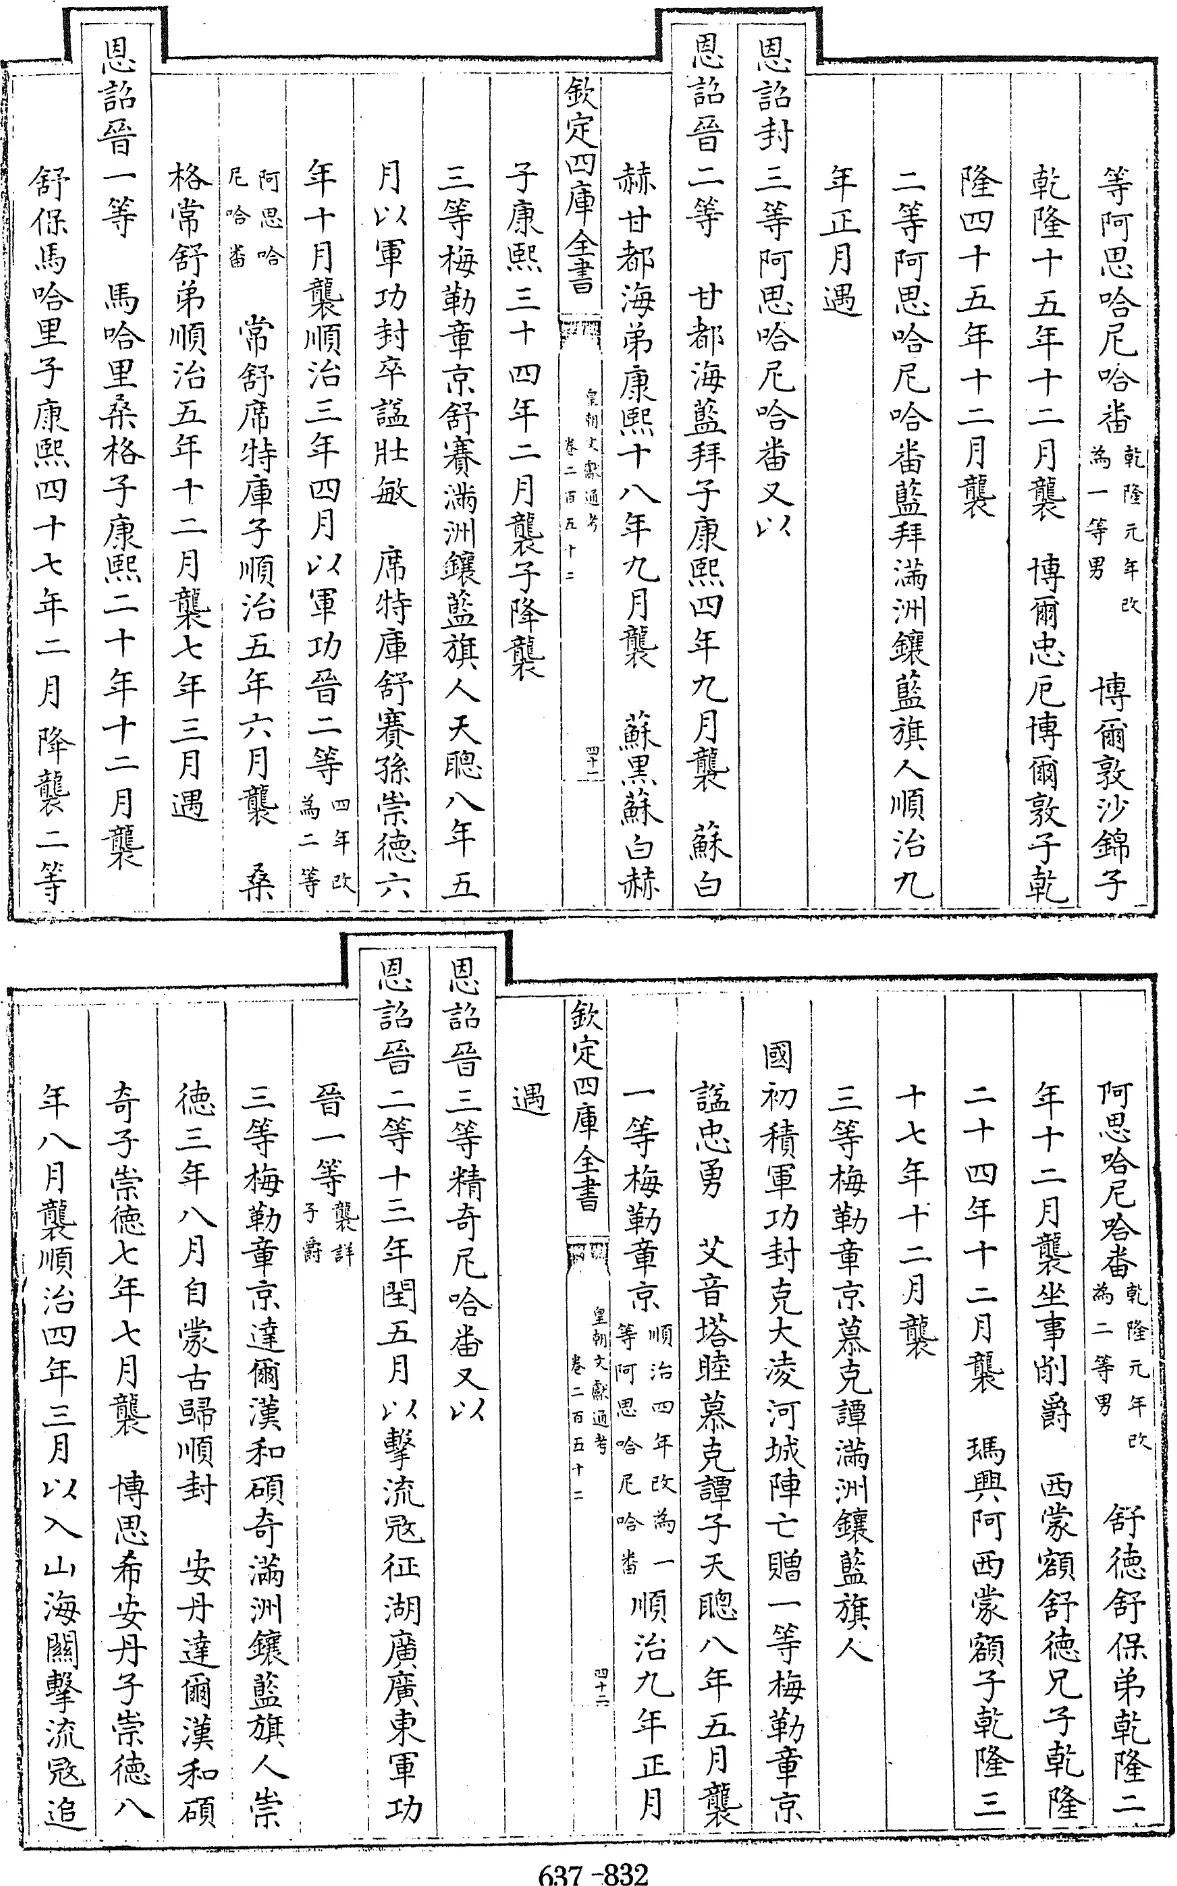 等阿思哈尼哈番乾隆元年改為一等男　博爾敦沙錦子
乾隆十五年十二月襲　博爾忠厄博爾敦子乾
隆四十五年十二月襲
二等阿思哈尼哈番藍拜滿洲鑲藍旗人順治九
年正月遇
恩詔封三等阿思哈尼哈番又以
恩詔晉二等　甘都海藍拜子康熙四年九月襲　蘇白
赫甘都海弟康熙十八年九月襲　蘇黑蘇白赫
欽定四庫全書　皇朝文獻通考卷二百五十二　四十一
子康熙三十四年二月襲子降襲
三等梅勒章京舒賽滿洲鑲藍旗人天聰八年五
月以軍功封卒諡壯敏　席特庫舒賽孫崇德六
年十月襲順治三年四月以軍功晉二等四年改為二等
阿思哈尼哈番　常舒席特庫子順治五年六月襲　桑
格常舒弟順治五年十二月襲七年三月遇
恩詔晉一等　馬哈里桑格子康熙二十年十二月襲
舒保馬哈里子康熙四十七年二月降襲二等
阿思哈尼哈番乾隆元年改為二等男　舒德舒保弟乾隆二
年十二月襲坐事削爵　西蒙額舒德兄子乾隆
二十四年十二月襲　瑪興阿西蒙額子乾隆三
十七年十二月襲
三等梅勒章京慕克譚滿洲鑲藍旗人
國初積軍功封克大凌河城陣亡贈一等梅勒章京
諡忠勇　艾音塔睦慕克譚子天聰八年五月襲
一等梅勒章京順治四年改為一等阿思哈尼哈番順治九年正月
欽定四庫全書　皇朝文獻通考卷二百五十二　四十二
遇
恩詔晉三等精奇尼哈番又以
恩詔晉二等十三年閏五月以擊流寇征湖廣廣東軍功
晉一等襲詳子爵
三等梅勒章京達爾漢和碩奇滿洲鑲藍旗人崇
德三年八月自蒙古歸順封　安丹達爾漢和碩
奇子崇德七年七月襲　博思希安丹子崇德八
年八月襲順治四年三月以入山海關擊流寇追
637-832